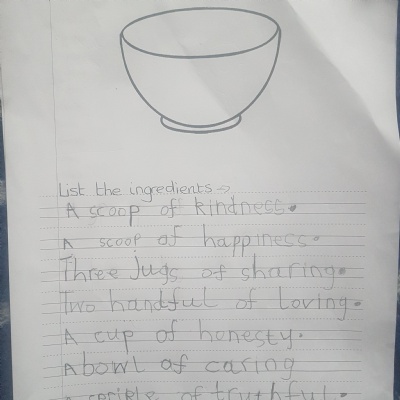 List the ingredients →
A scoop of kindness.
A scoop of happiness.
Three jugs of sharing.
Two handful of loving.
A cup of honesty.
A bowl of caring
A of truthful.